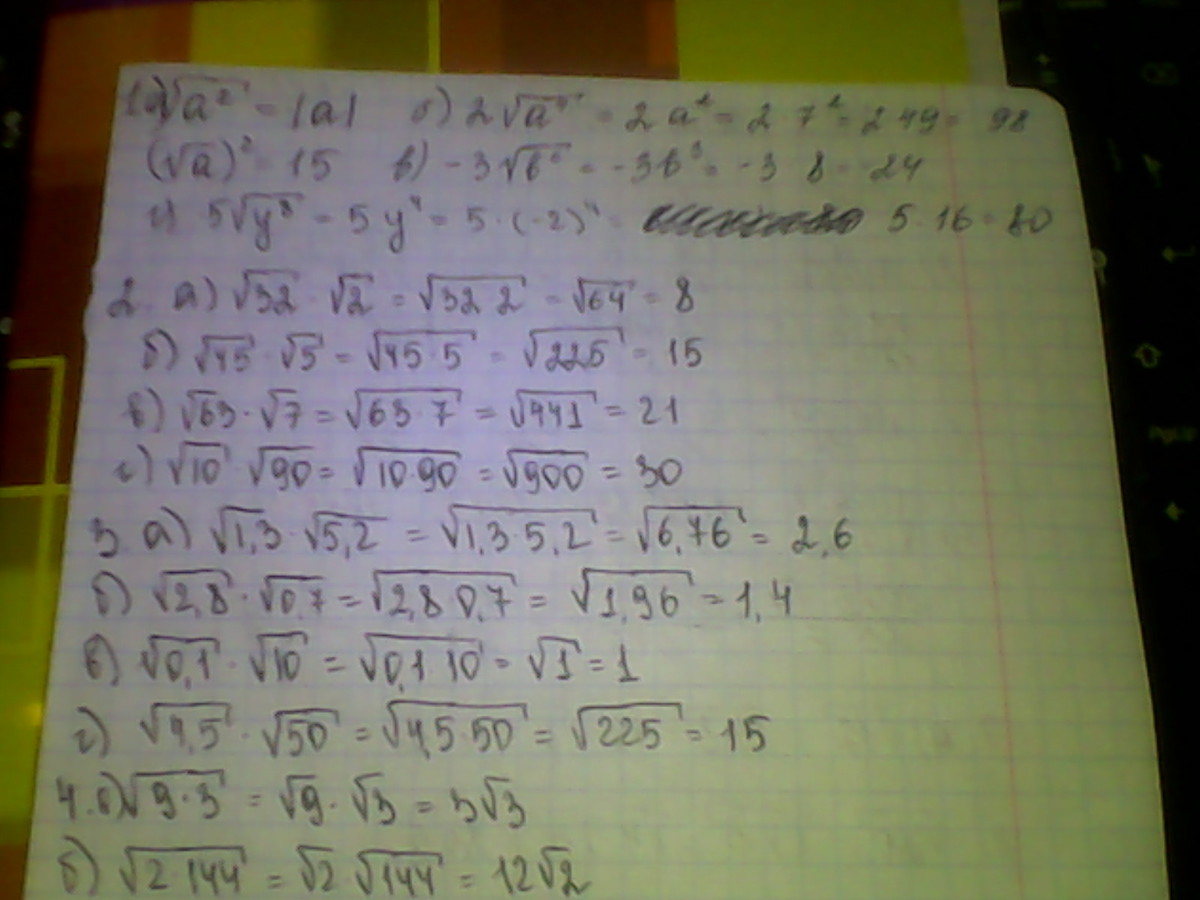 1. а) √a² = |a| б) 2√a⁴ = 2a² = 2 7² = 2 49 = 98
(√a)² = 15 в) -3√b⁶ = -3b³ = -3 8 = -24
г) 5√y⁸ = 5y⁴ = 5·(-2)⁴ = 5·16 = 80
2. а) √32 · √2 = √32 2 = √64 = 8
б) √45 · √5 = √45·5 = √225 = 15
в) √63 · √7 = √63·7 = √441 = 21
г) √10 √90 = √10·90 = √900 = 30
3. а) √1,3 · √5,2 = √1,3·5,2 = √6,76 = 2,6
б) √2,8 · √0,7 = √2,8 0,7 = √1,96 = 1,4
в) √0,1 · √10 = √0,1 10 = √1 = 1
г) √4,5 · √50 = √4,5·50 = √225 = 15
4. √9·3 = √9 · √3 = 3√3
б) √2 144 = √2 √144 = 12√2